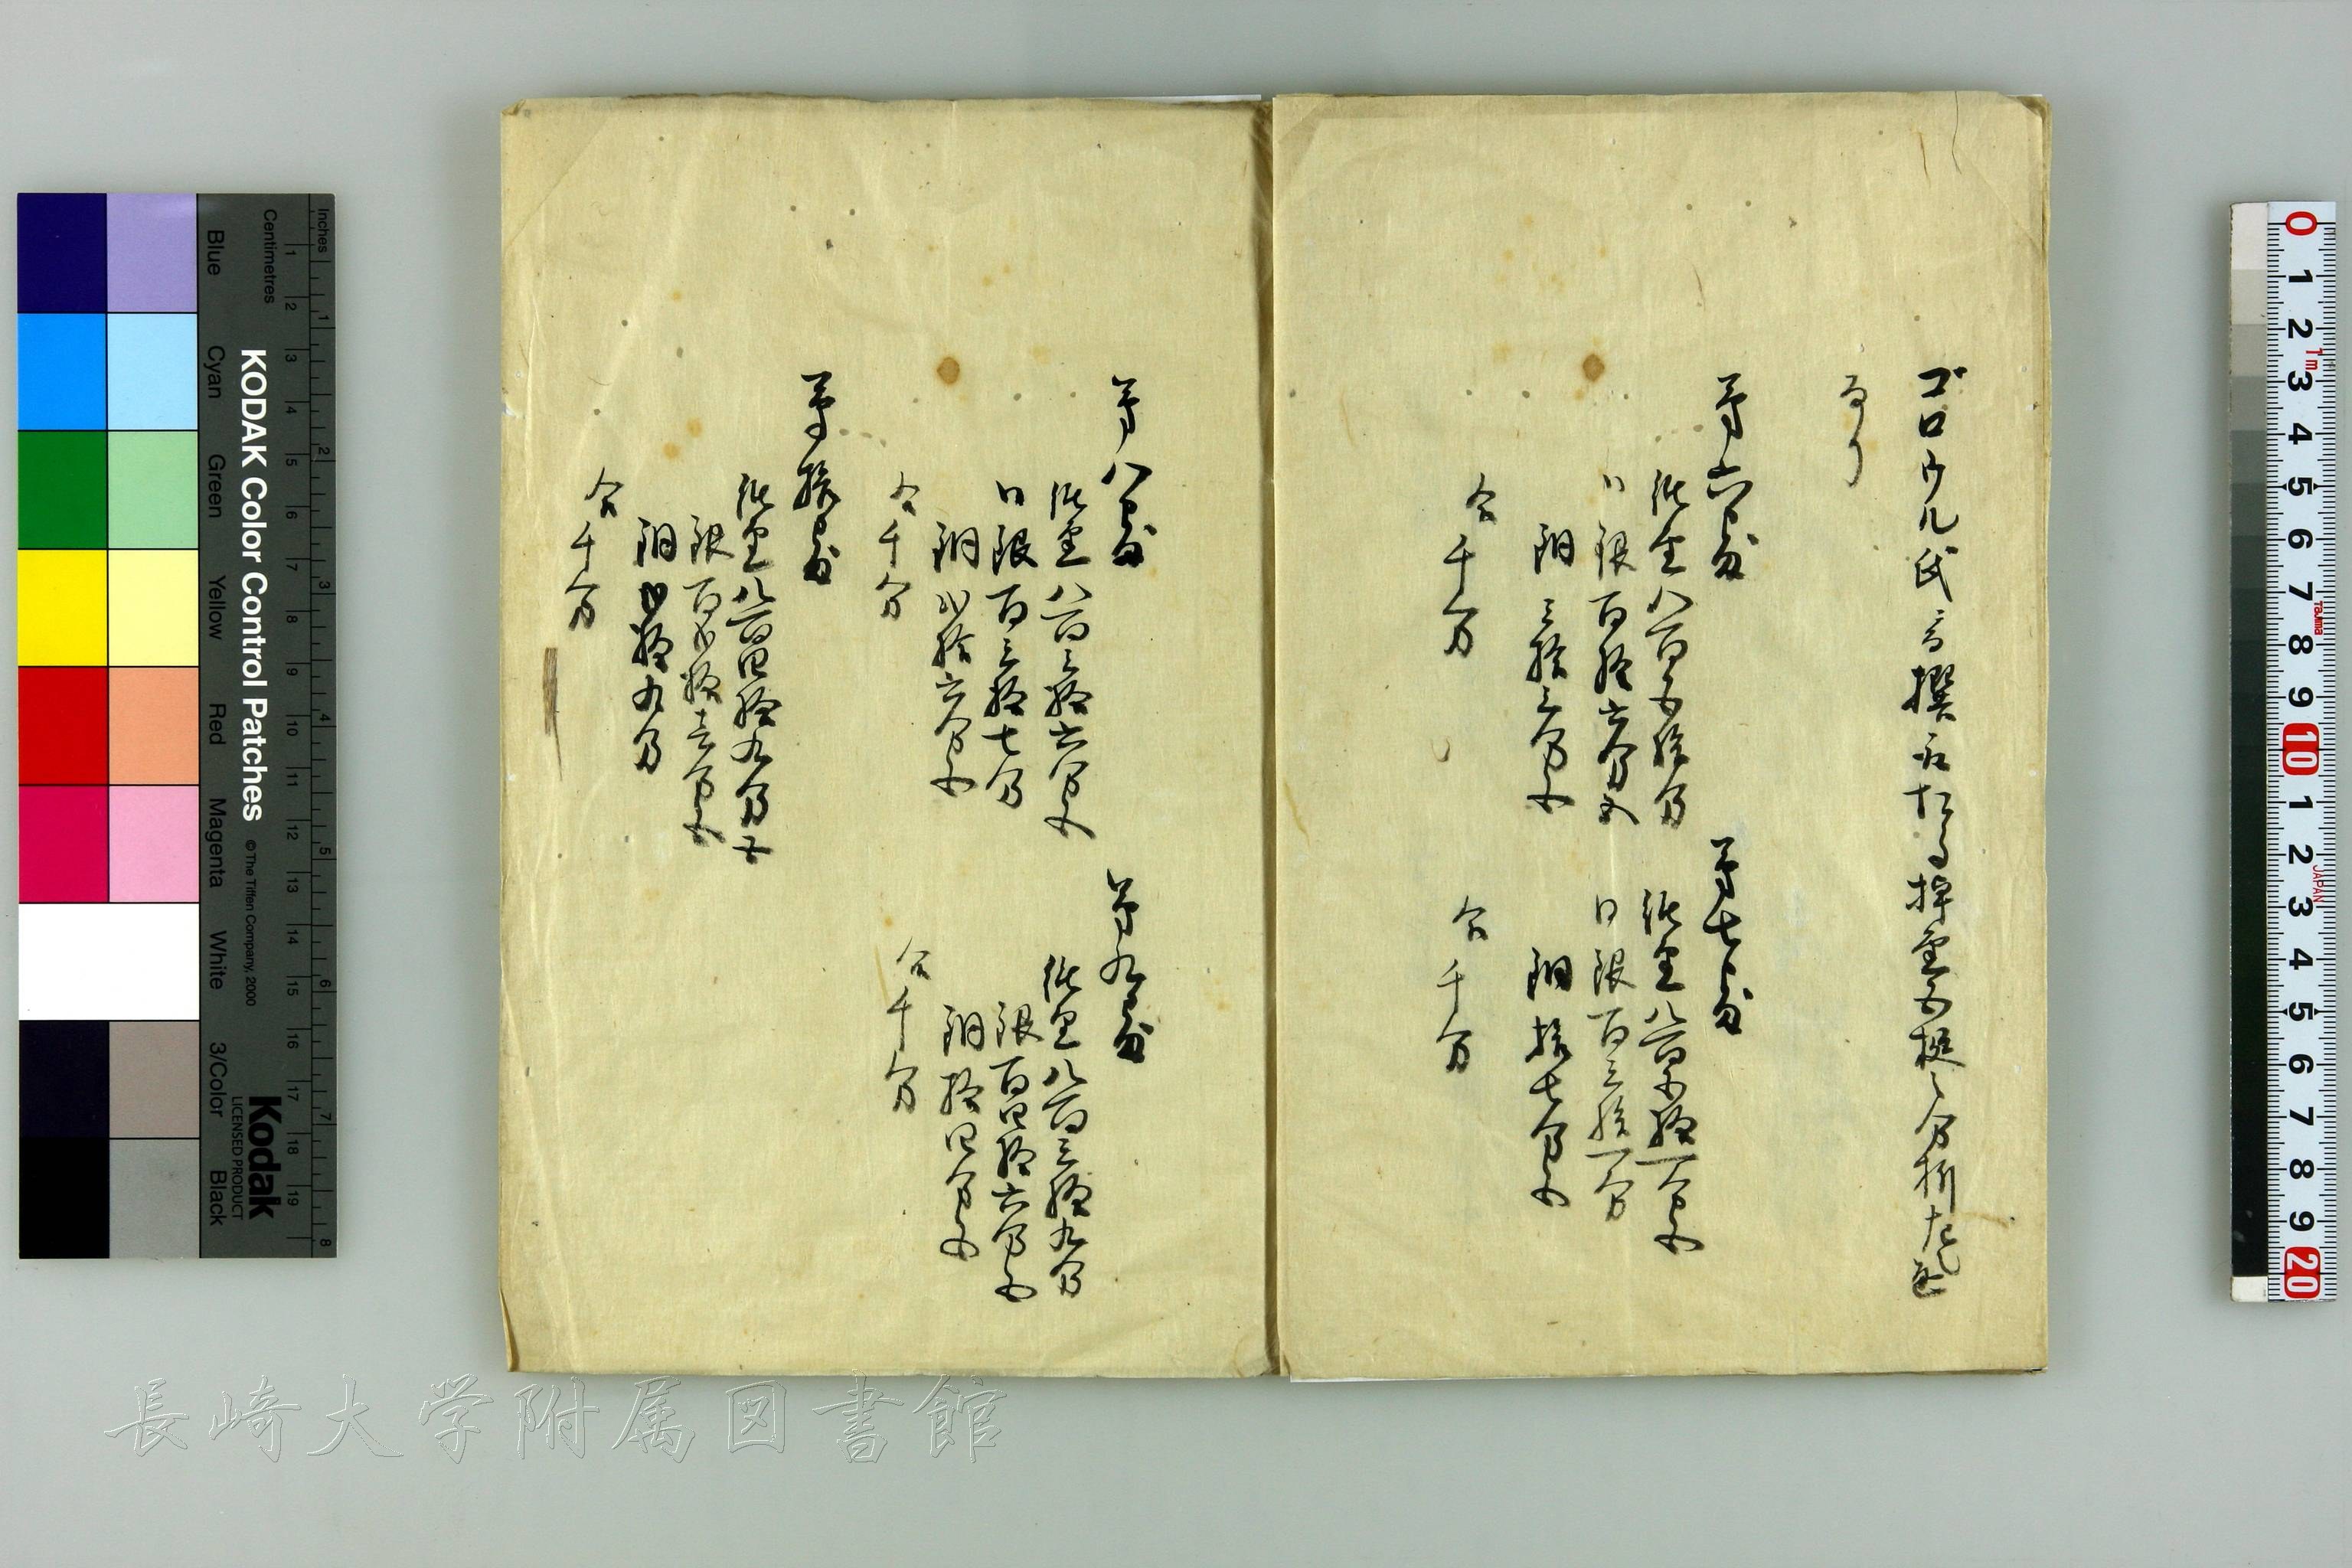 ゴロウル氏ニ而撰取たる掉金五挺之分析左之通
なり
第六番
純金八百五拾分
同銀百拾六分五
銅三拾三分五
合千分
第七番
純金八百五拾一分五
同銀百三拾一分
銅拾七分五
合千分
第八番
純金八百三拾六分五
同銀百三拾七分
銅弐拾六分五
合千分
第九番
純金八百三拾九分
銀百四拾六分五
銅拾四分五
合千分
第拾番
純金八百四拾九分五
銀百弐拾壱分五
銅弐拾九分
合千分
長崎大学附属図書館
KODAK Color Control Patches © The Tiffen Company, 2000
Kodak
LICENSED PRODUCT
Inches
Centimetres
Blue Cyan Green Yellow Red Magenta White 3/Color Black
1 2 3 4 5 6 7 8 9 10 11 12 13 14 15 16 17 18 19
1 2 3 4 5 6 7 8
0 1 2 3 4 5 6 7 8 9 10 1 2 3 4 5 6 7 8 9 20
1m
Tajima
JAPAN